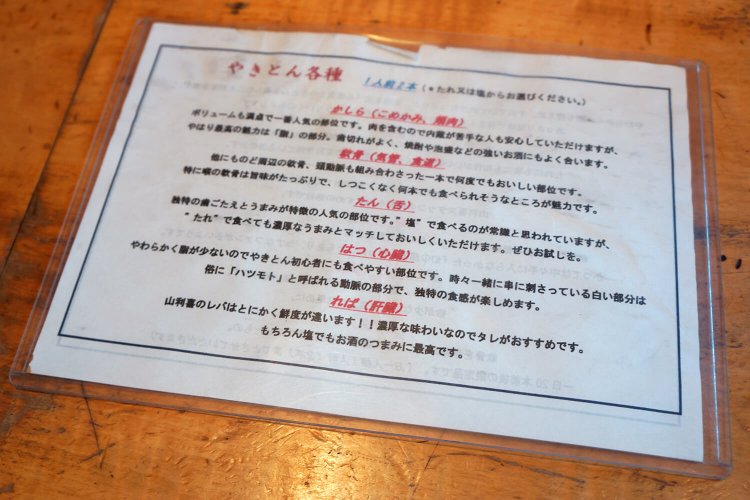 やきとん各種 1人前2本 (*たれ又は塩からお選びください。)
かしら（こめかみ、頬肉）
ボリュームも満点で一番人気の部位です。肉を含むので内蔵が苦手な人も安心していただけますが、
やはり最高の魅力は「脂」の部分。歯切れがよく、焼酎や泡盛などの強いお酒にもよく合います。
軟骨（気管、食道）
他にものど周辺の軟骨、頸動脈も組み合わさった一本で何度でもおいしい部位です。
特に喉の軟骨は旨味がたっぷりで、しつこくなく何本でも食べられそうなところが魅力です。
たん（舌）
独特の歯ごたえとうまみが特徴の人気の部位です。”塩”で食べるのが常識と思われていますが、
”たれ”で食べても濃厚なうまみとマッチしておいしくいただけます。ぜひお試しを。
はつ（心臓）
やわらかく脂が少ないのでやきとん初心者にも食べやすい部位です。時々一緒に串に刺さっている白い部分は
俗に「ハツモト」と呼ばれる動脈の部分で、独特の食感が楽しめます。
れば（肝臓）
山利喜のレバはとにかく鮮度が違います！！濃厚な味わいなのでタレがおすすめです。
もちろん塩でもお酒のつまみに最高です。